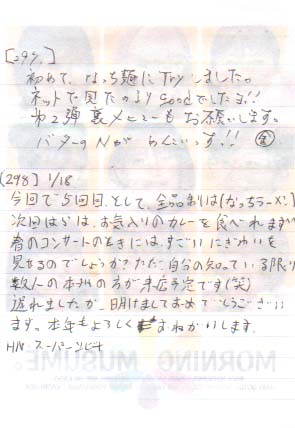 [297]
初めて、なっち麺にTryしました。
ネットで見たのよりGoodでしたよ!!
第2弾裏メニューもお願いします。
バターのNが
[298] 1/18
今回で5回目、として、全品制は(なっちラーメン)
次回からは、お気入りのカレーを食べれます
春のコンサートのときには、すごいにぎわいを
見せるのでしょうか?ただ、自分の知っている限り
数人の本州の方が来店予定です(笑)
遅れましたが、明けましておめでとうござい
ます。本年もよろしくおねがいします。
HN.スーパー
MORNING MUSUME。